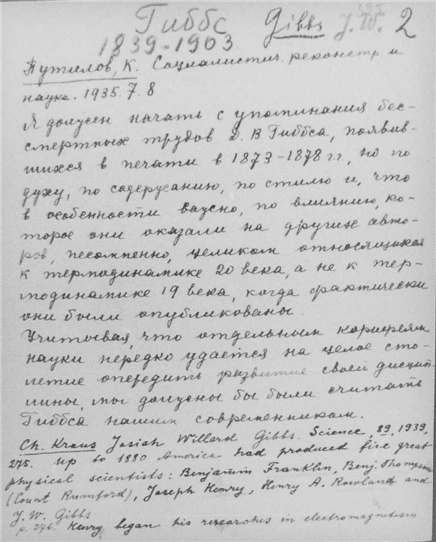 Гиббс Gibbs J. W. 2
1839-1903
Путилов, К. Социалистич. реконстр и
наука. 1935. 7. 8
Я должен начать с упоминания бес-
смертных трудов Д. В Гиббса, появив-
шихся в печати в 1873-1878 гг, но по
духу, по содержанию, по стилю и, что
в особенности важно, по влиянию, ко-
торое они оказали на других авто-
ров, несомненно, целиком относящихся
к термодинамике 20 века, а не к тер-
модинамике 19 века, когда фактически
они были опубликованы.
Учитывая, что отдельным корифеям
науки нередко удается на целое сто-
летие опередить развитие своей дисцип-
лины, мы должны бы были считать
Гиббса нашим современником.
Ch. Kraus Josiah Willard Gibbs. Science, 89, 1939,
275. Up to 1880 America had produced five great
physical scientists: Benjamin Franklin, Benj. Thompson
(Count Rumford), Joseph Henry, Henry A. Rowland and
J. W. Gibbs
p. 276. Henry began his researches in electromagnetism